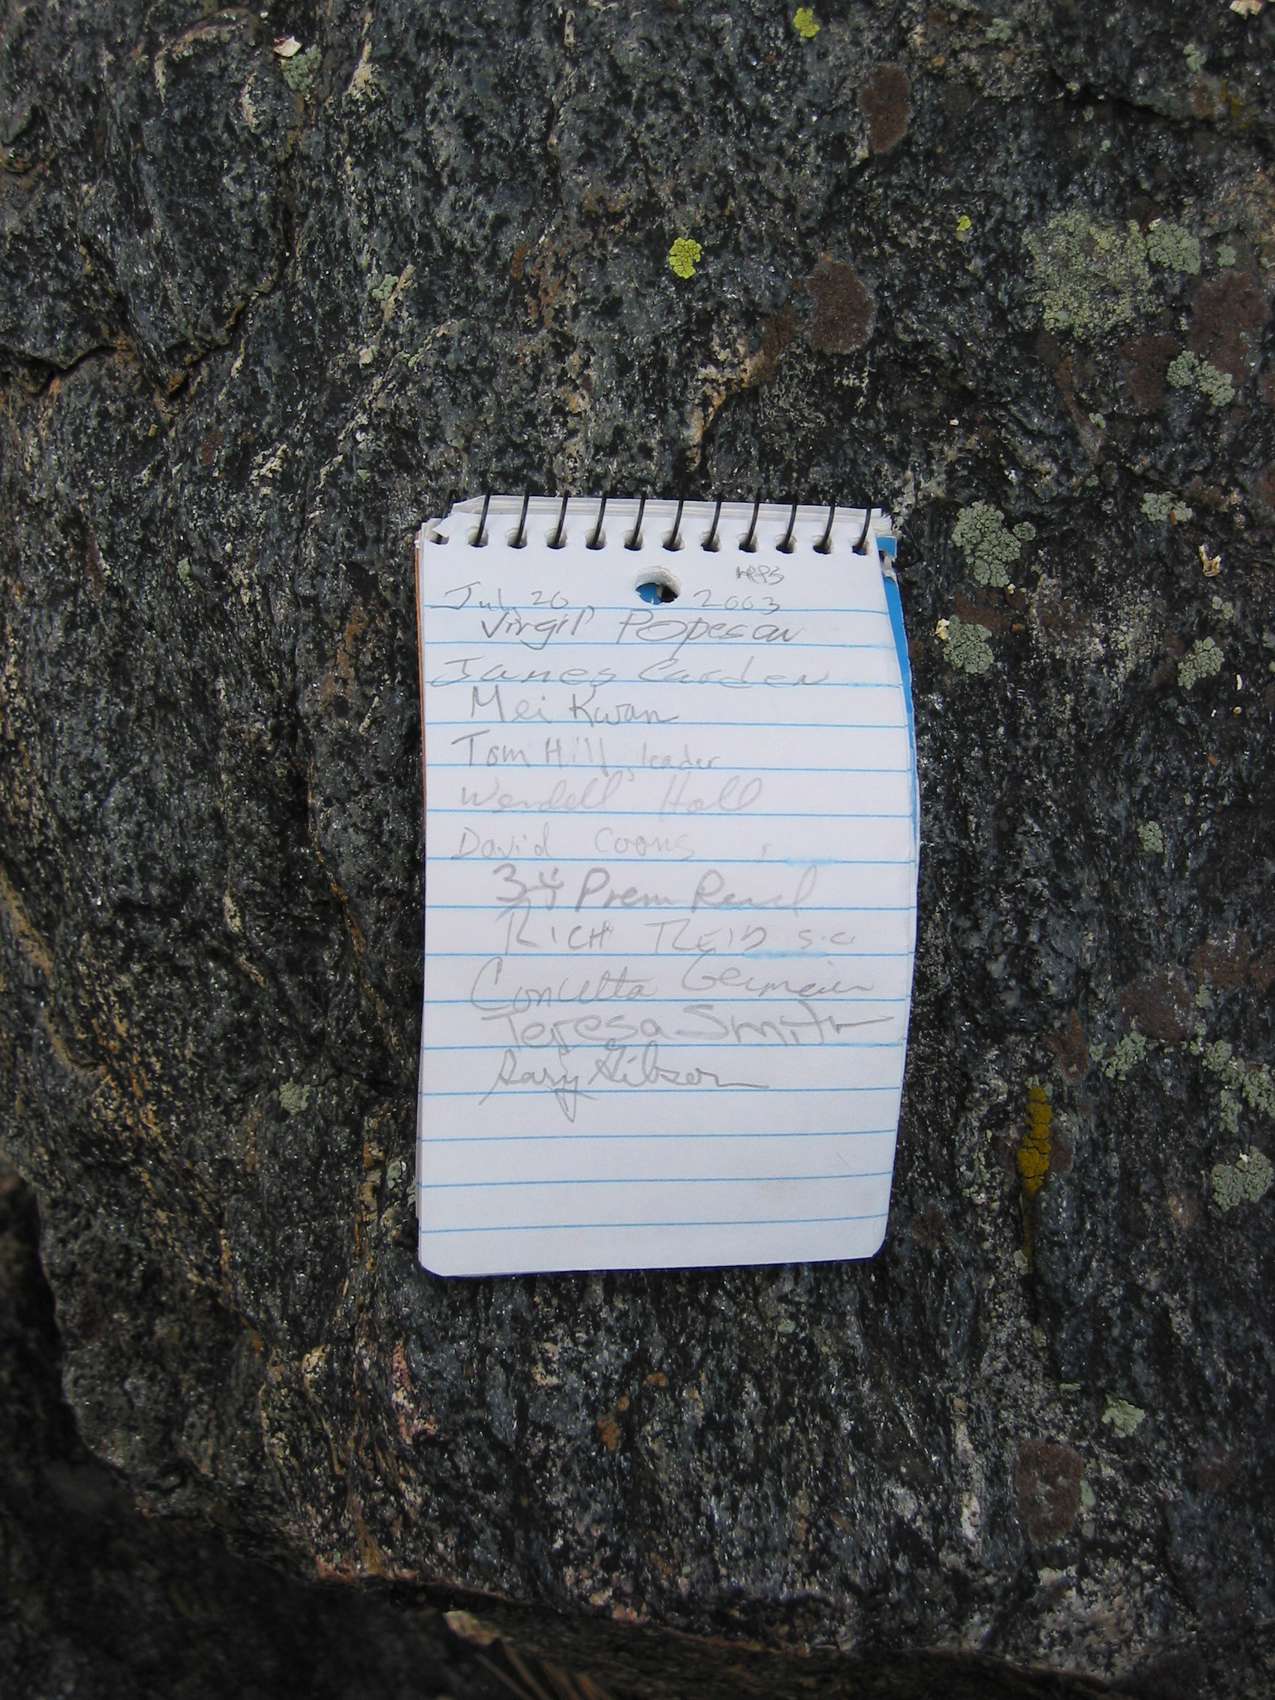 HPS
Jul 20 2003
Virgil Popescu
James Carden
Mei Kwan
Tom Hill, leader
Wendell Hall
David Coons
34 Prem
RICH REID S.C.
Concetta Germain
Teresa Smith
Gary Gibson